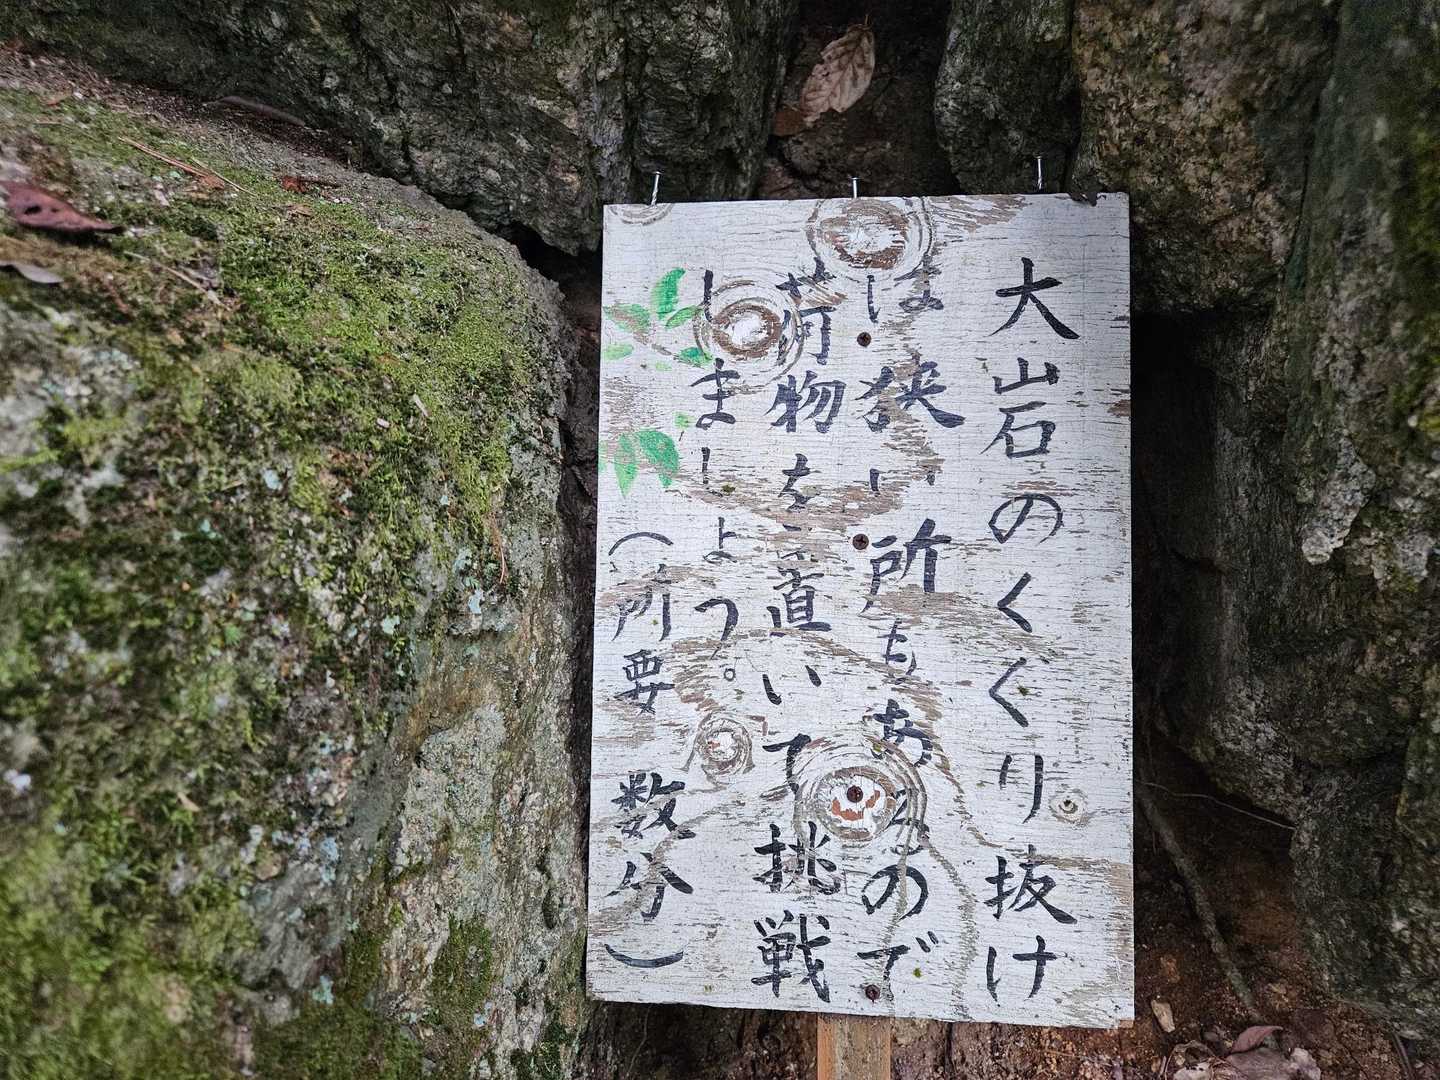 大岩のくぐり抜け
は狭い所もあるので
荷物を置いて挑戦
しましょう。
(所要 数分)